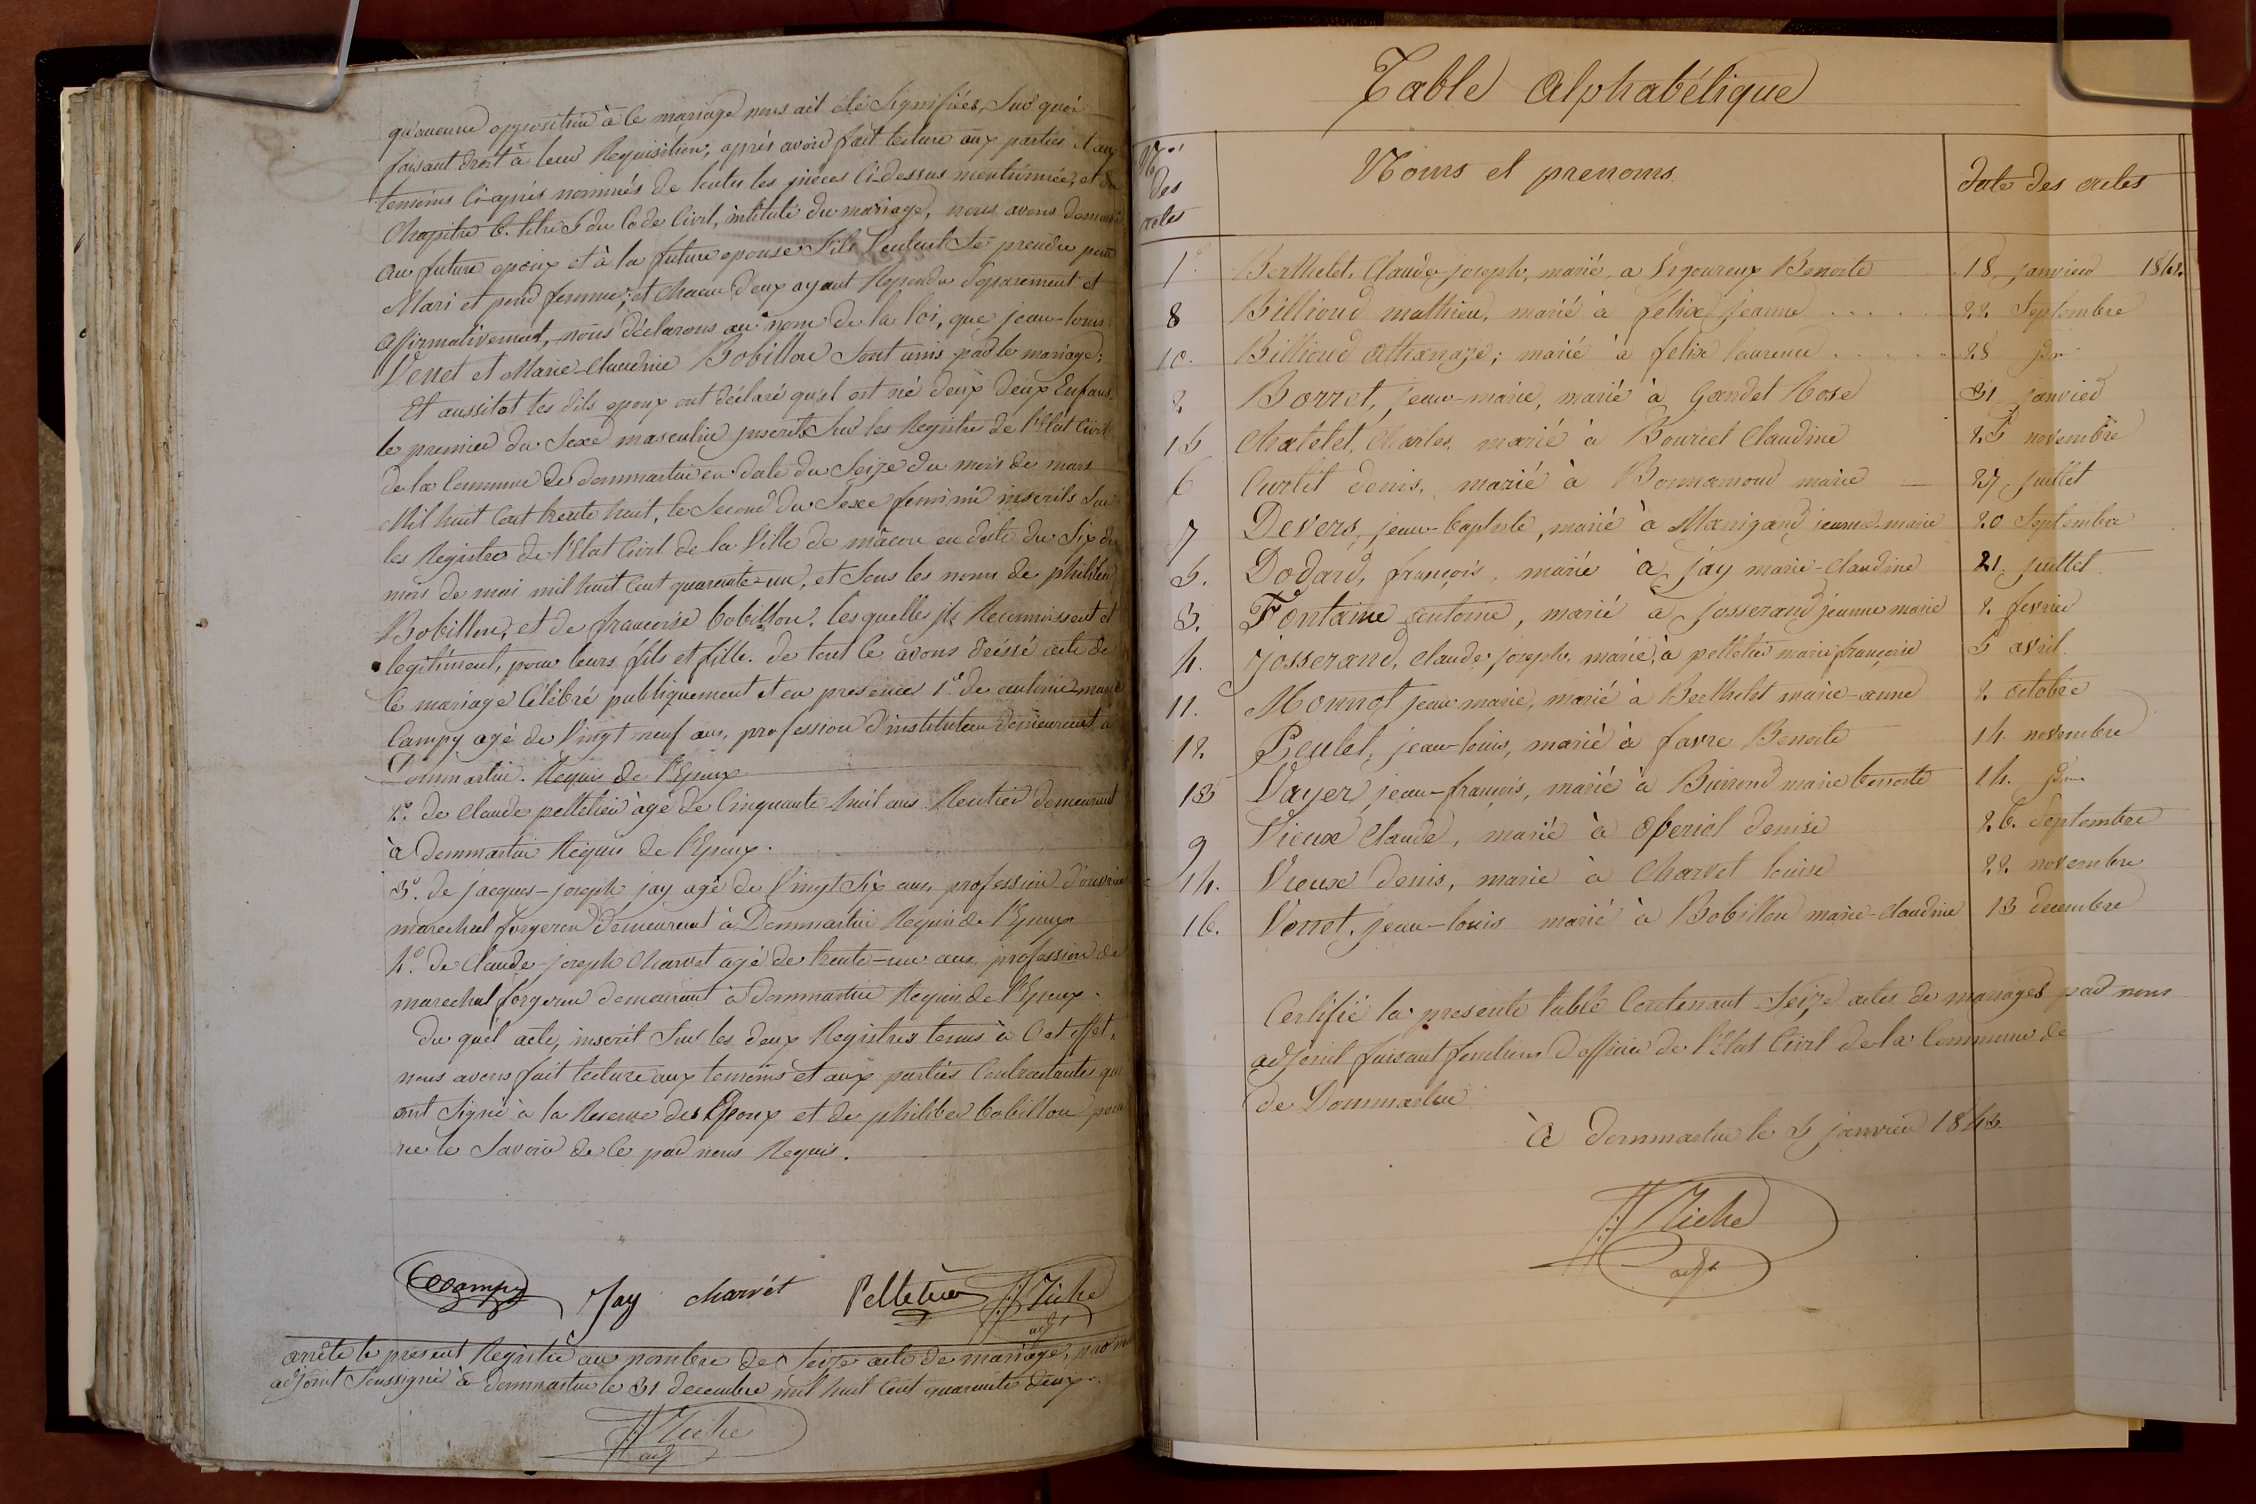 qu'aucune opposition à ce mariage nous ait été signifiées, sur quoi
faisant droit à leur Requisition, après avoir fait lecture aux parties et aux
temoins ci-après nommés de toutes les pièces ci-dessus mentionnées, et du
Chapitre 6. titre 5 du Code Civil, intitulé du mariage, nous avons demandé
au future epoux et à la future epouse s'ils veulent se prendre pour
Mari et pour femme; et chacun d'eux ayant Repondu separement et
affirmativement, nous déclarons au nom de la loi, que jean-louis
Verret et Marie-Claudine Bobillon sont unis par le mariage;
Et aussitot les dits epoux ont déclaré qu'il est né d'eux deux Enfans.
le premier du Sexe masculin inscrits sur les Registre de l'Etat Civil
de la Commune de dommartin en date du Seize du mois de mars
Mil huit Cent trente huit, le Second du Sexe feminin inscrits sur
les Registre de l'Etat Civil de la Ville de mâcon en date du Six du
mois de mai mil huit Cent quarante-un, et sous les noms de philiber
Bobillon, et de francoise bobillon. lesquelles ils Reconnoissent et
legitiment, pour leurs fils et fille. de tout ce avons dréssé acte de
ce mariage Célébré publiquement et en presence 1.º de antoine-marie
Campy agé de Vingt neuf ans, profession d'instituteur demeurant à
Dommartin. Requis de l'Epoux
2.º de Claude pelletier agé de Cinquante-huit ans Rentier demeurant
à Dommartin Réquis de l'Epoux.
3.º de jacques-joseph jay agé de Vingt Six ans, profession d'ouvrier
marechal forgeron demeurant à Dommartin Requis de l'Epoux
4.º de Claude-joseph Charvet agé de trente-un ans, profession de
marechal forgeron demeurant à dommartin Requis de l'Epoux.
du quel acte, inscrit sur les deux Registres tenus à Cet effet,
nous avons fait lecture aux temoins et aux parties Contractantes qui
ont Signé à la Reserve des Epoux et de philiber bobillon pour
ne le Savoir de ce par nous Requis.
Campy Jay charvét Pelletier Tiche
adjt
arrété le présent Registre au nombre de Seize acte de mariage, par nous
adjoint Soussigné à dommartin le 31 decembre mil huit Cent quarante deux.
Tiche
adj
Table Alphabétique
Nos des actes Noms et prenoms. date des actes
1º Berthelet, Claude-joseph, marié, a Vigoureux Benoite 18 janvier 1842.
8 Billioud mathieu, marié à felix jeanne 22 Septembre
10. Billioud athanaze; marié à felix laurence 28 do
2 Borret, jean-marie, marié à Gandet Rose 31 janvier
15 Chatelet, Charles, marié à Bourcet Claudine 25 novembre
6 Curtet denis, marié à Bonnamoud marie 27 juillet
7 Devers, jean-baptiste, marié à Manigand jeanne-marie 20 Septembre
5. Dodard, françois, marié à jay marie-Claudine 21 juillet
3. Fontaine antoine, marié à josserand jeanne marie 2 fevrier
4. josserand, Claude-joseph, marié, à pelletier marie françoise 5 avril
11. Monnot jean marie, marié à Berthelet marie-anne 2 octobre
12 Peulet, jean-louis, marié à favre Benoite 14 novembre
13 Vayer jean-françois, marié à marie benoite 14. do
9 Vieux Claude, marié à denise 26. Septembre
14. Vieux denis, marié à Charvet louise 22 novembre
16. Verret, jean-louis marié à Bobillon marie-Claudine 13 decembre
Certifié la presente table Contenant Seize actes de mariages par nous
adjoint faisant fonctions d'officier de l'Etat Civil de la Commune de
de Dommartin
à dommartin le 5 janvier 1843.
Tiche
adjt